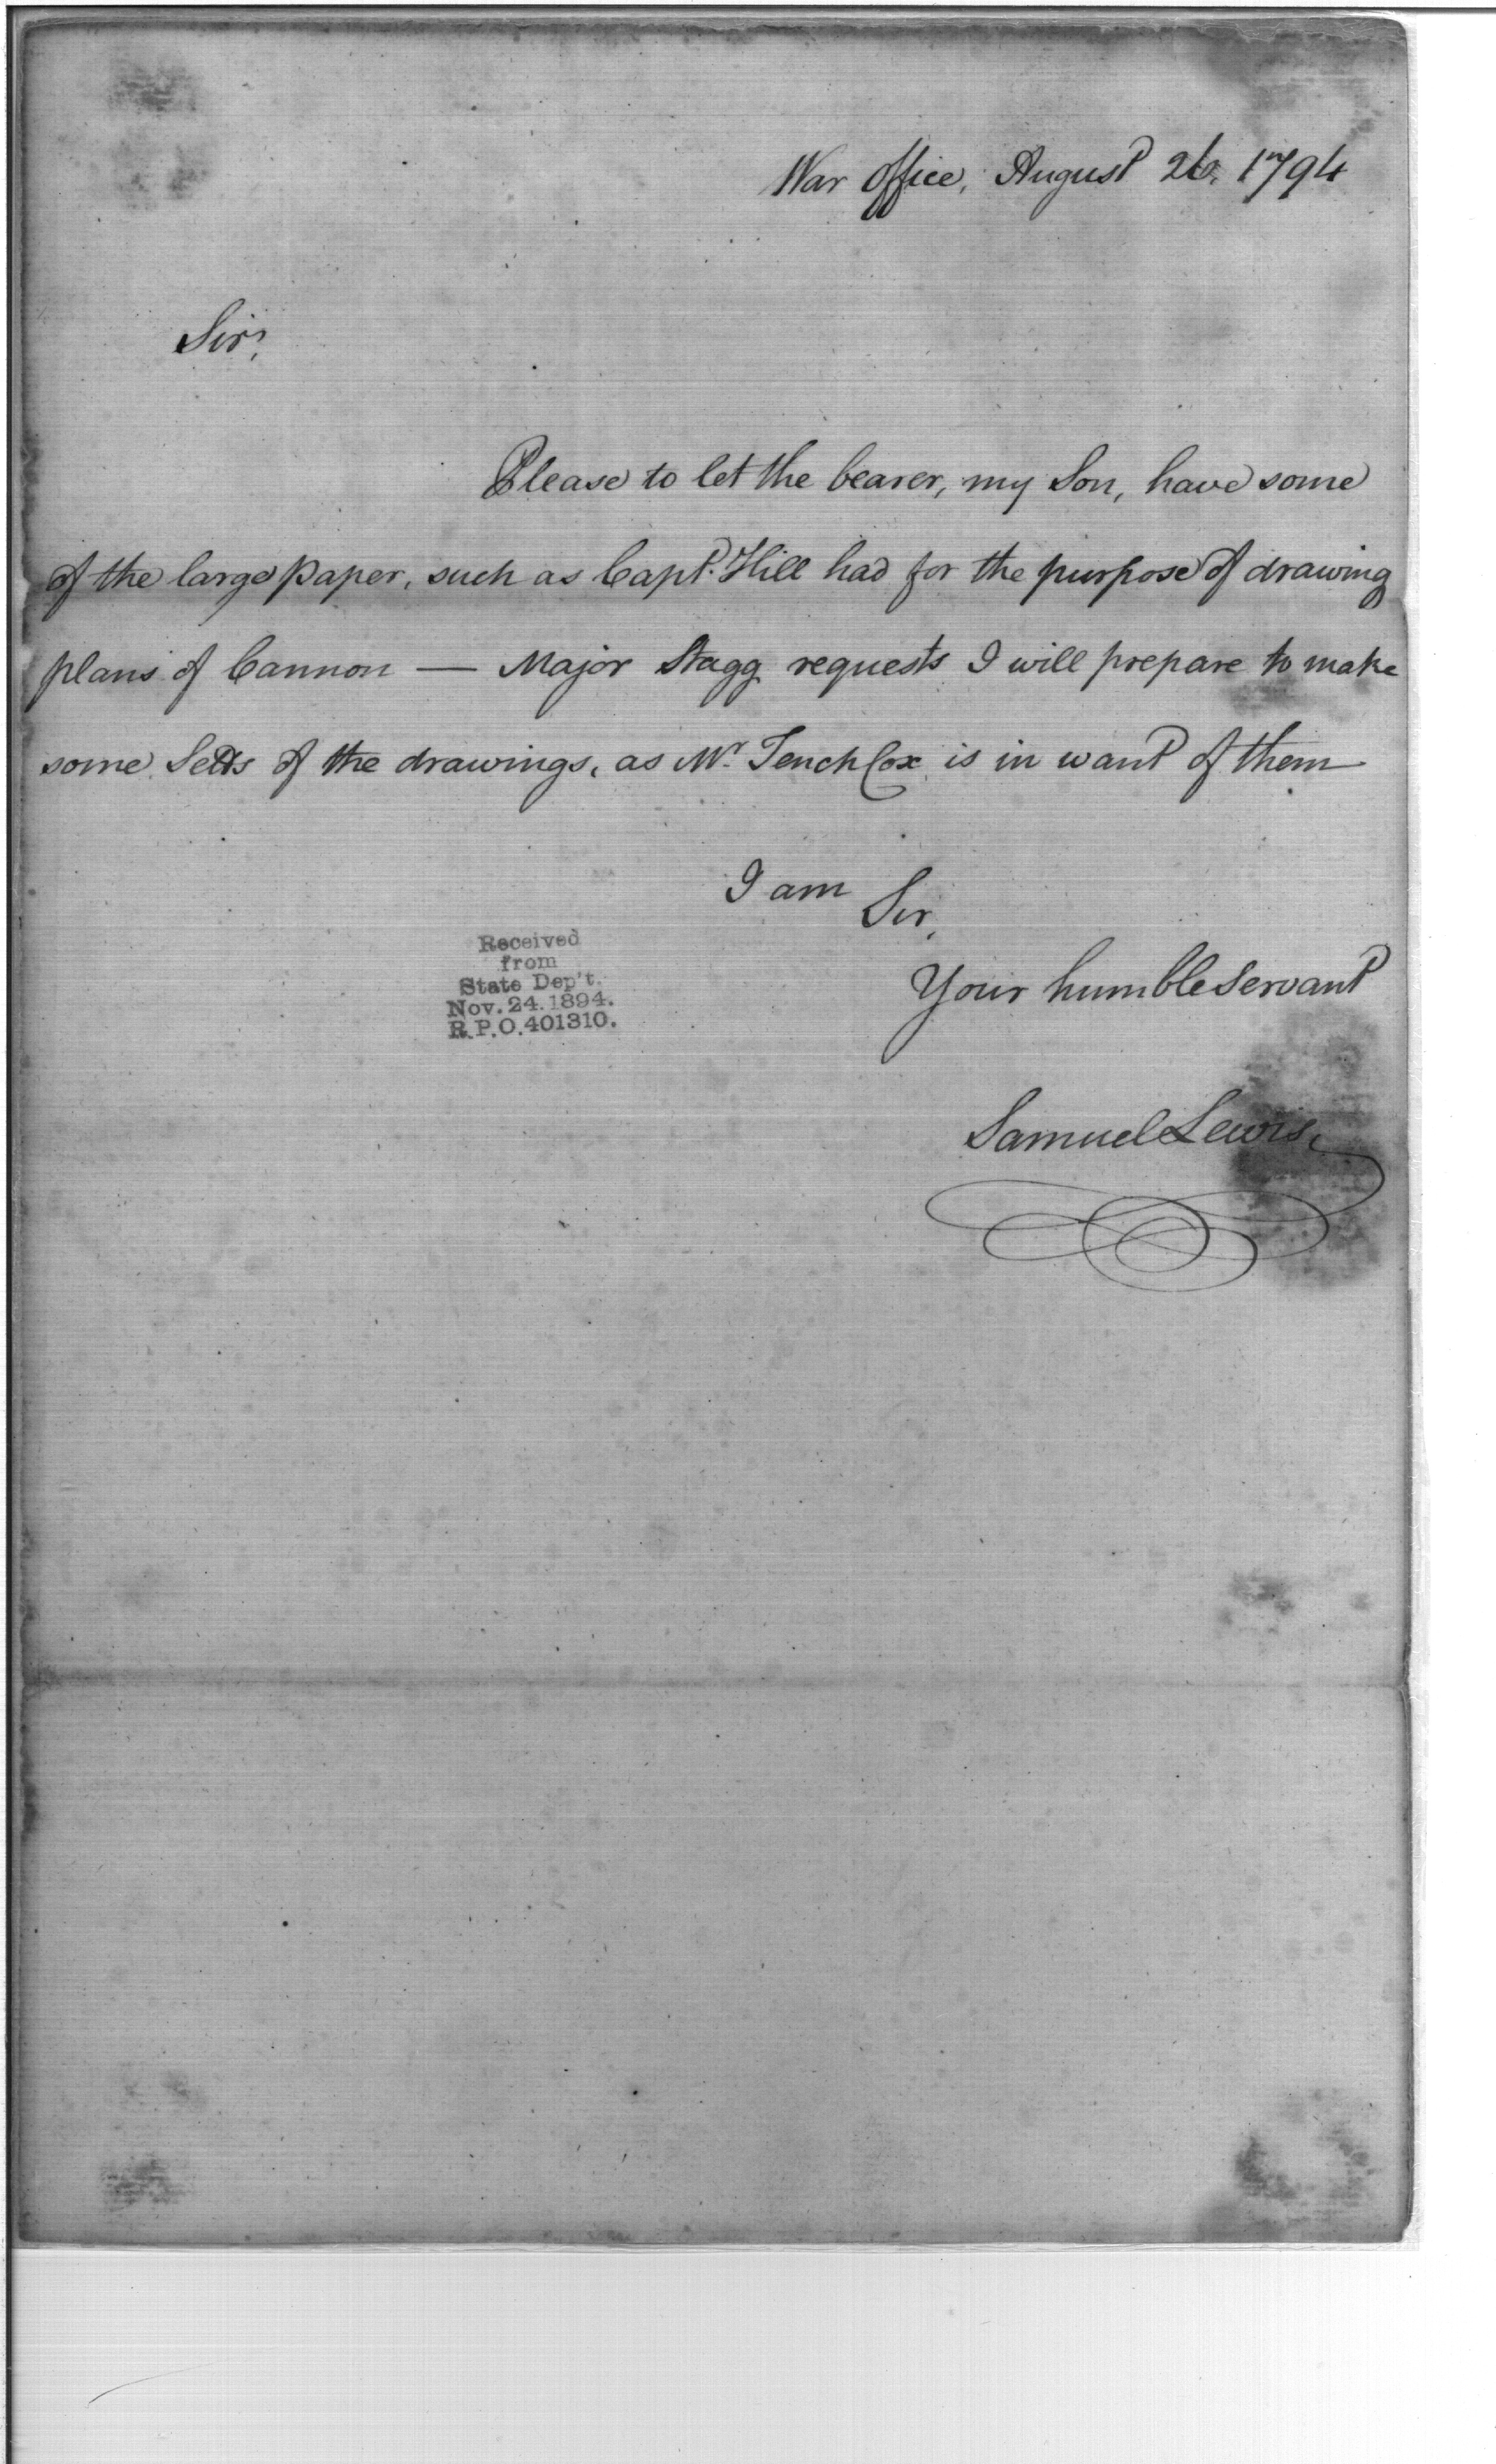 War Office, August 26, 1794
Sir,
Please to let the bearer, my Son, have some
of the large paper, such as Capt. Hill had for the purpose of drawing
plans of Cannon — Major Stagg requests I will prepare to make
some Setts of the drawings, as Mr. Tench Cox is in want of them
I am
Sir,
Your humble Servant
Samuel Lewis
Received
from
State Dep't.
Nov. 24. 1894.
R.P.O. 401310.